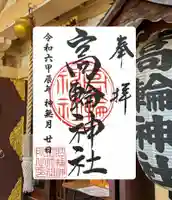 奉拝
高輪神社
令和六甲辰年 神無月 廿日
高輪神社